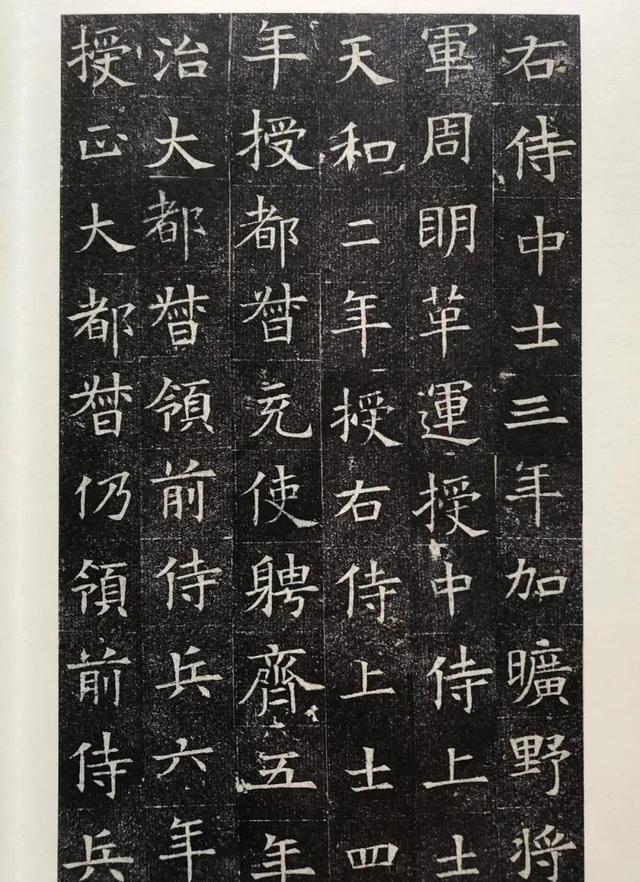 右侍中士三年加曠野将
軍周明革運授中侍上士
天和二年授右侍上士四
年授都督充使聘齊五年
治大都督領前侍兵六年
授正大都督仍領前侍兵